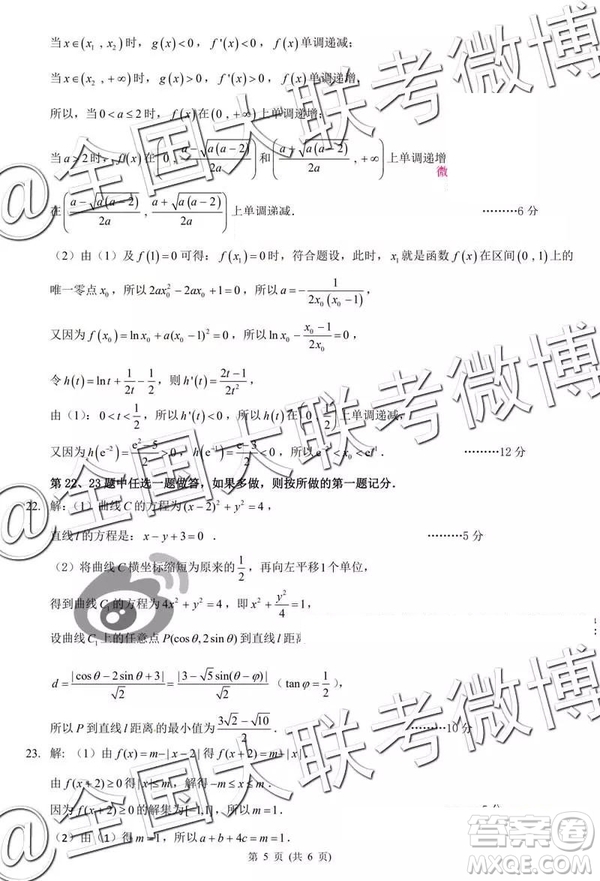 当 x∈(x₁, x₂) 时, g(x)<0, f'(x)<0, f(x) 单调递减;
当 x∈(x₂, +∞) 时, g(x)>0, f'(x)>0, f(x) 单调递增,
所以, 当 0<a≤2 时, f(x) 在 (0, +∞) 上单调递增;
当 a>2 时, f(x) 在 (0, (a-√(a(a-2)))/2a) 和 ((a+√(a(a-2)))/2a, +∞) 上单调递增
微
在 ((a-√(a(a-2)))/2a, (a+√(a(a-2)))/2a) 上单调递减. ………6 分
(2) 由 (1) 及 f(1)=0 可得: f(x₁)=0 时, 符合题设, 此时, x₁ 就是函数 f(x) 在区间 (0, 1) 上的
唯一零点 x₀, 所以 2ax₀²-2ax₀+1=0, 所以 a=-1/(2x₀(x₀-1)),
又因为 f(x₀)=ln x₀+a(x₀-1)²=0, 所以 ln x₀-(x₀-1)/2x₀=0,
令 h(t)=ln t+1/2t-1/2, 则 h'(t)=(2t-1)/2t²,
由 (1): 0<t<1/2, 所以 h'(t)<0, 所以 h(t) 在 (0, 1/2) 上单调递减,
又因为 h(e⁻²)=(e²-5)/2>0, h(e⁻¹)=(e-3)/2<0, 所以 e⁻²<x₀<e⁻¹. ………12 分
第 22、23 题中任选一题做答, 如果多做, 则按所做的第一题记分.
22. 解: (1) 曲线 C 的方程为 (x-2)²+y²=4,
直线 l 的方程是: x-y+3=0. ………5 分
(2) 将曲线 C 横坐标缩短为原来的 1/2, 再向左平移 1 个单位,
得到曲线 C₁ 的方程为 4x²+y²=4, 即 x²+y²/4=1,
设曲线 C₁ 上的任意点 P(cosθ, 2sinθ) 到直线 l 距离
d=|cosθ-2sinθ+3|/√2=|3-√5sin(θ-φ)|/√2 (tanφ=1/2),
所以 P 到直线 l 距离的最小值为 (3√2-√10)/2. ………10 分
23. 解: (1) 由 f(x)=m-|x-2| 得 f(x+2)=m-|x|.
由 f(x+2)≥0 得 |x|≤m, 解得 -m≤x≤m.
因为 f(x+2)≥0 的解集为 [-1,1], 所以 m=1. 5 分
(2) 由 (1) 得 m=1, 所以 a+b+4c=1.
第 5 页 (共 6 页)
@全国大联考微博
@全国大联考微博
@全国大联考微博
答案圈
MXQE.COM